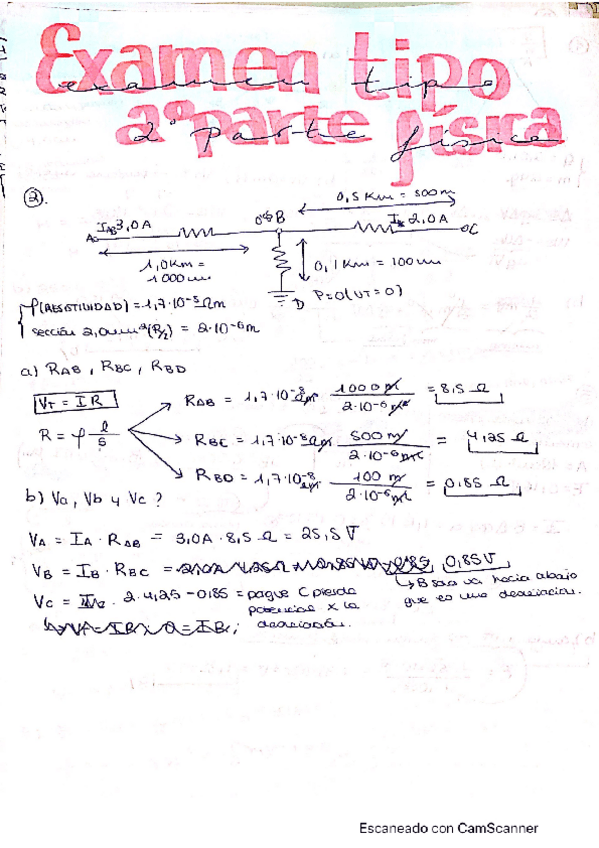 Examen tipo
examen tipo
2º parte física
2º parte física
②.
0,5 Km = 500m
I_AB 3,0A
B
I 2,0A
A
C
1,0Km =
1000m
0,1 Km = 100m
D
P=0 (VT=0)
ρ(RESISTIVIDAD) = 1,7·10⁻⁸ Ωm
sección 2,0mm² = 2·10⁻⁶m
a) RAB, RBC, RBD
VT = I R
R = ρ l/s
RAB = 1,7·10⁻⁸ Ωm 1000 m / 2·10⁻⁶ m² = 8,5 Ω
RBC = 1,7·10⁻⁸ Ωm 500 m / 2·10⁻⁶ m² = 4,25 Ω
RBD = 1,7·10⁻⁸ Ωm 100 m / 2·10⁻⁶ m² = 0,85 Ω
b) Va, Vb y Vc ?
VA = IA · RAB = 3,0A · 8,5 Ω = 25,5 V
VB = IB · RBC = 0,85V
va hacia abajo
que es una derivación.
VC = 2·4,25 - 0,85 = porque C pierde
potencial x la
derivación.
Escaneado con CamScanner